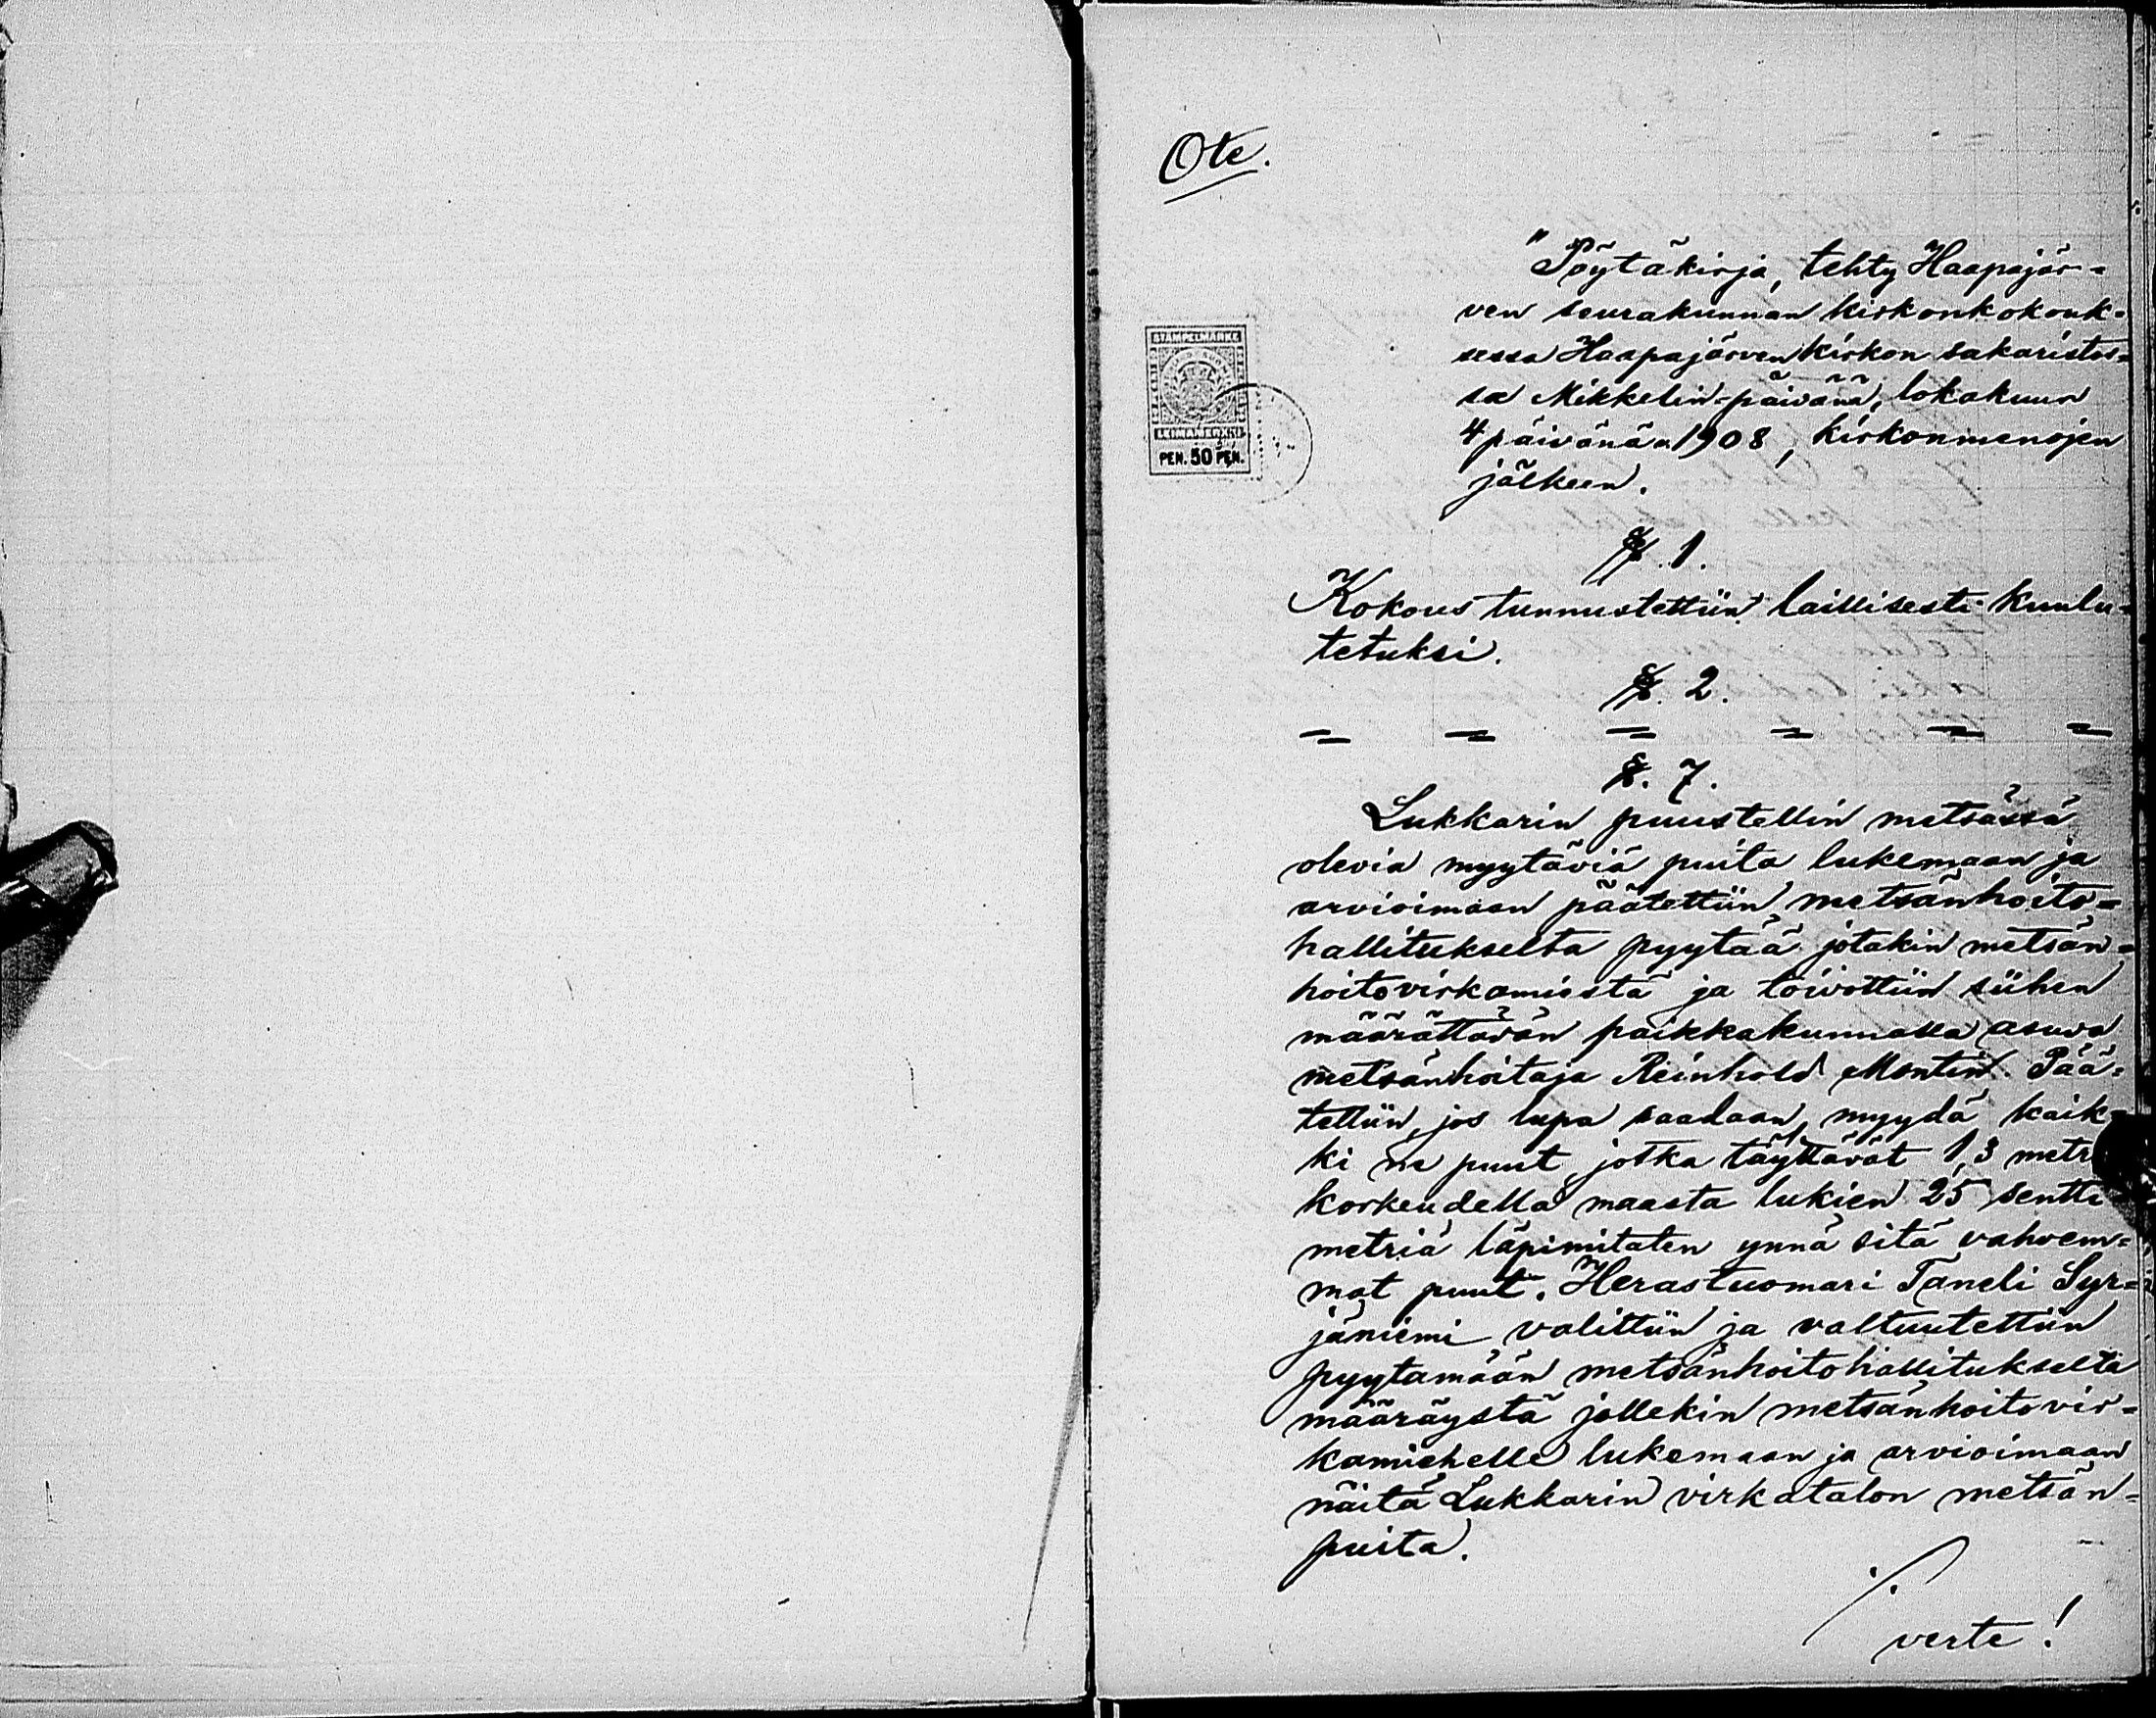 Ote.
"Pöytäkirja, tehty Haapajär=
ven seurakunnan kirkonkokouk=
sessa Haapajärven kirkon sakaristos=
sa Mikkelin-päivänä, lokakuun
4 päivänä 1908, kirkonmenojen
jälkeen.
STÄMPELMÄRKE
LEIMAMERKKI
PEN. 50 PEN.
§. 1.
Kokous tunnustettiin laillisesti kuulu=
tetuksi.
§. 2.
= = = = = =
§. 7.
Lukkarin puustellin metsässä
olevia myytäviä puita lukemaan ja
arvioimaan päätettiin metsänhoito=
hallitukselta pyytää jotakin metsän=
hoitovirkamiestä ja toivottiin siihen
määrättävän paikkakunnalla asuva
metsänhoitaja Reinhold Montin. Pää=
tettiin, jos lupa saadaan, myydä kaik=
ki ne puut, jotka täyttävät 1,3 metri
korkeudella maasta lukien 25 sentti=
metriä läpimitaten ynnä sitä vahvem=
mat puut. Herastuomari Taneli Syr=
jäniemi valittiin ja valtuutettiin
pyytämään metsänhoitohallitukselta
määräystä jollekin metsänhoitovir=
kamiehelle lukemaan ja arvioimaan
näitä Lukkarin virkatalon metsän=
puita.
./.
verte!